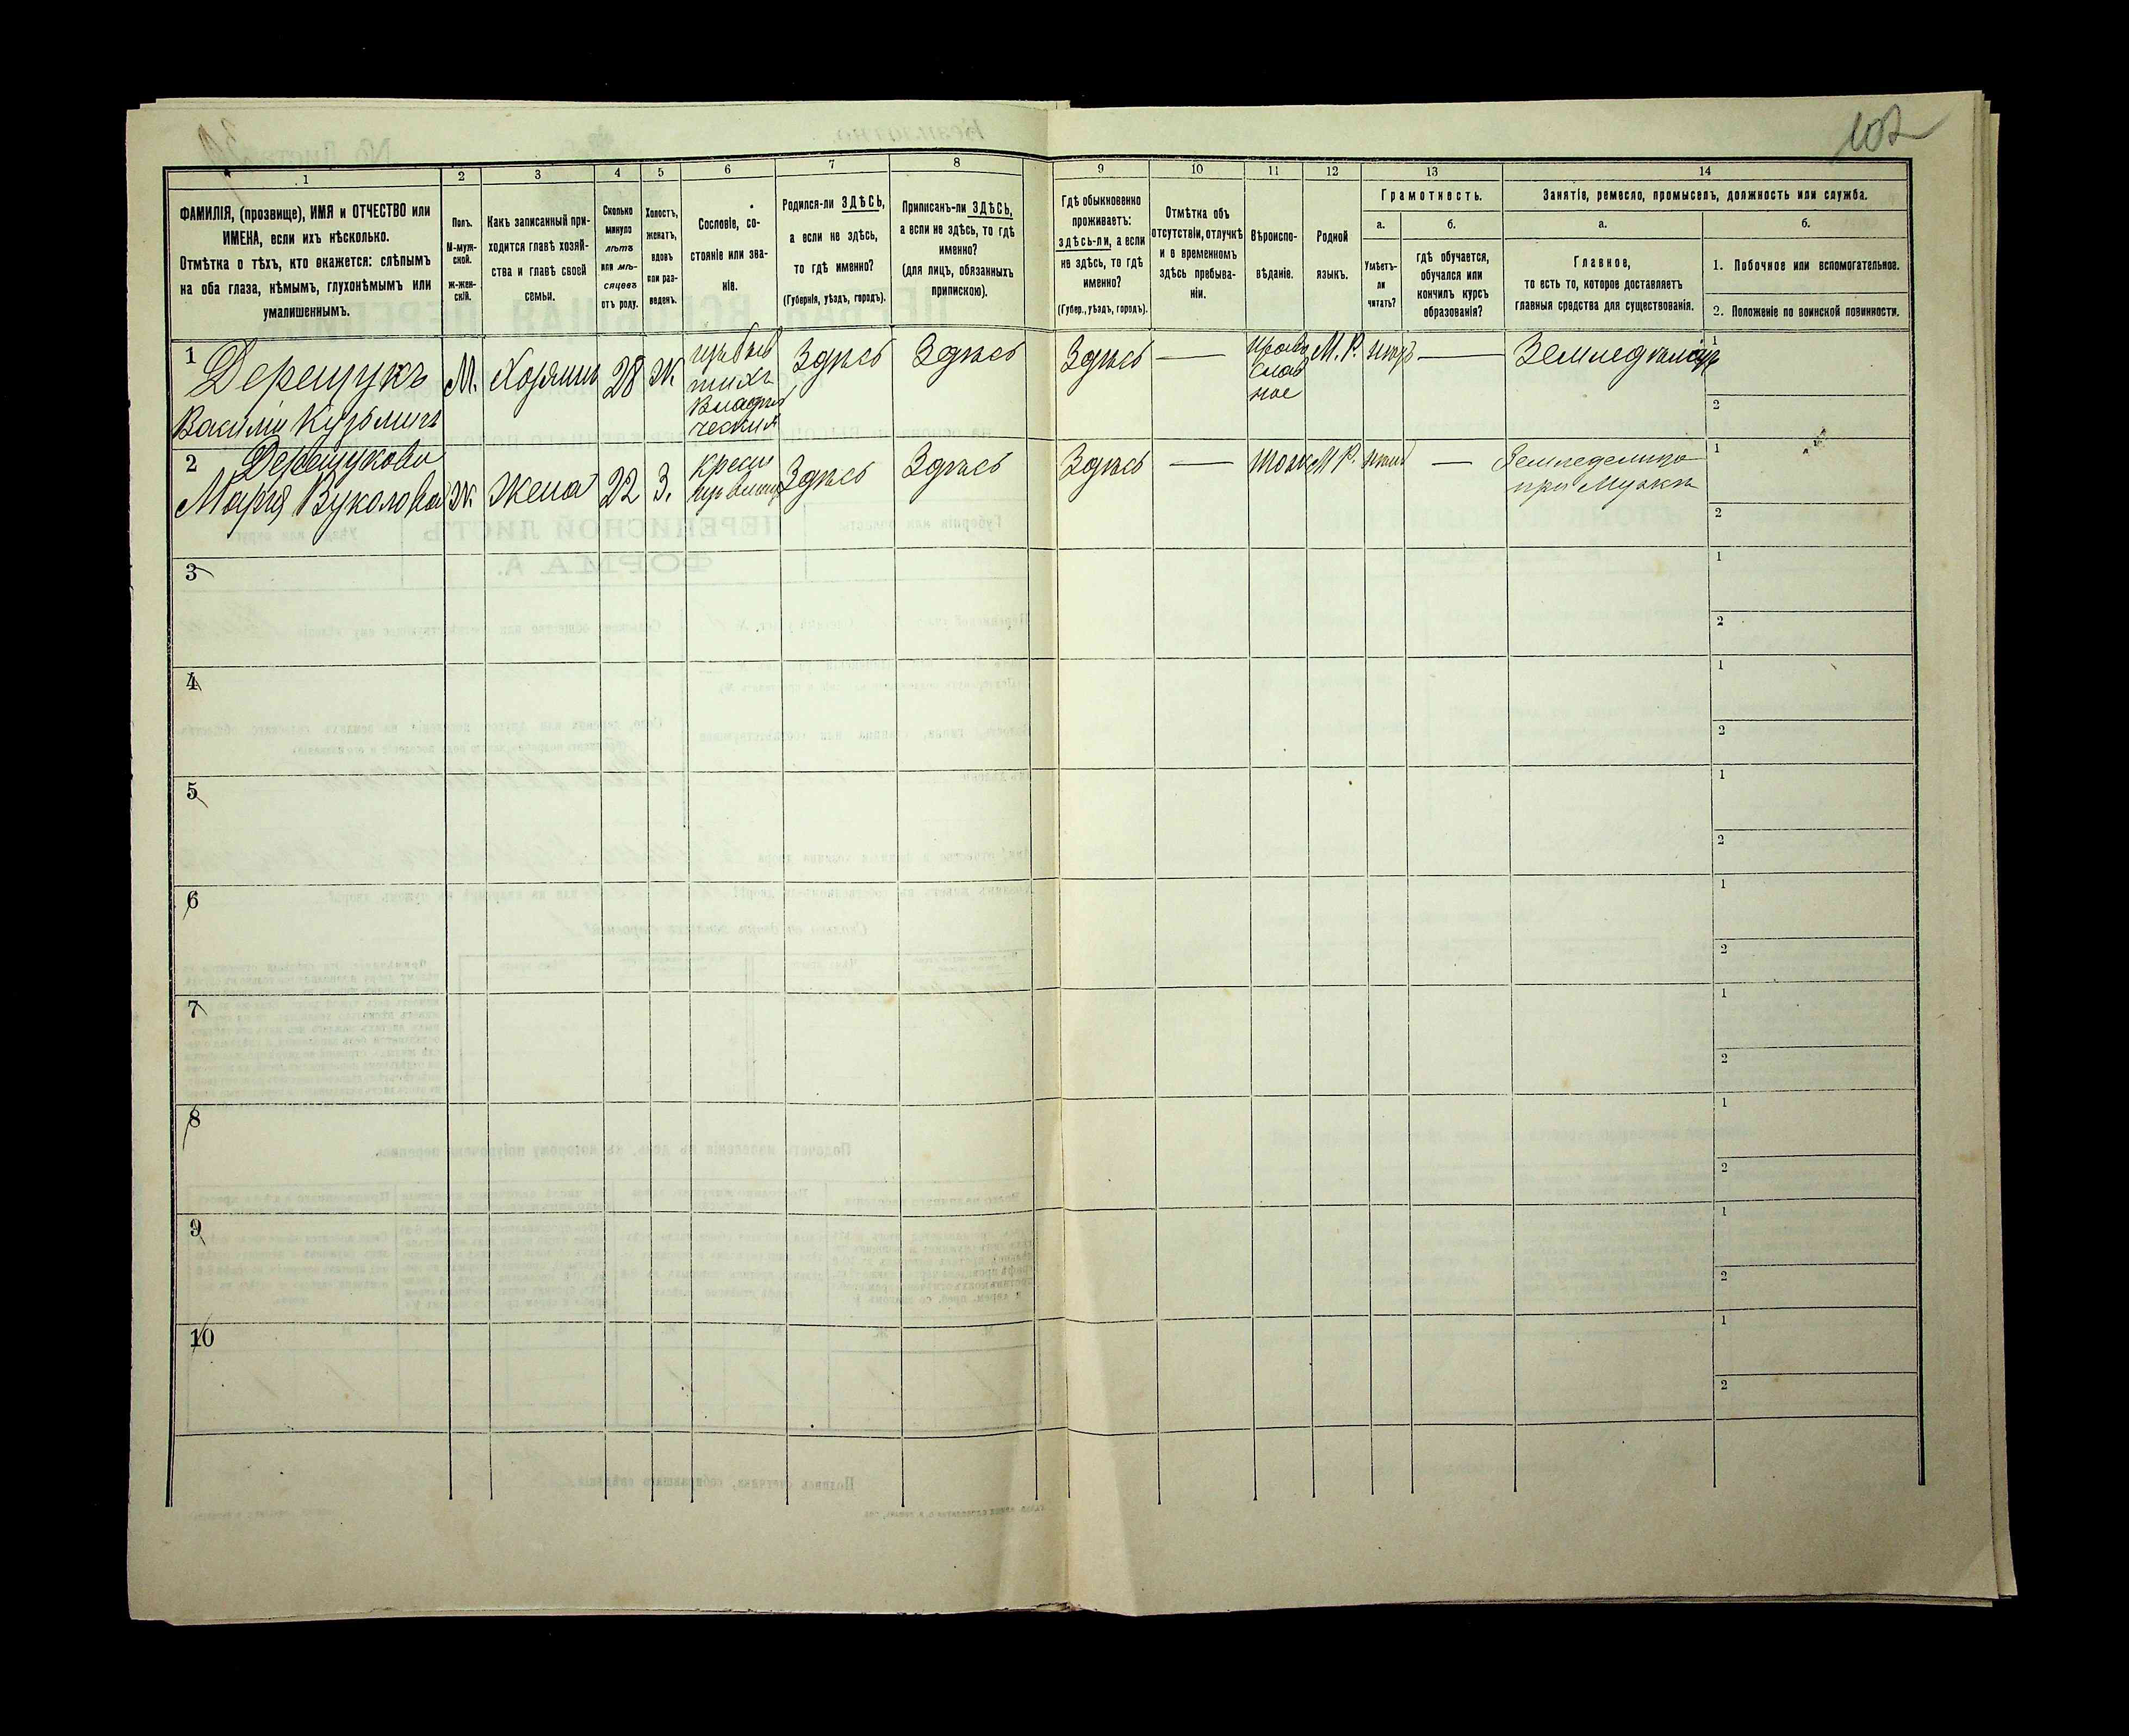 102
1
2
3
4
5
6
7
8
9
10
11
12
13
14
ФАМИЛІЯ, (прозвище), ИМЯ и ОТЧЕСТВО или
ИМЕНА, если ихъ нѣсколько.
Отмѣтка о тѣхъ, кто окажется: слѣпымъ
на оба глаза, нѣмымъ, глухонѣмымъ или
умалишеннымъ.
Полъ.
М-муж-
ской.
ж-жен-
скій.
Какъ записанный при-
ходится главѣ хозяй-
ства и главѣ своей
семьи.
Сколько
минуло
лѣтъ
или мѣ-
сяцевъ
отъ роду.
Холостъ,
женатъ,
вдовъ
или раз-
веденъ.
Сословіе, со-
стояніе или зва-
ніе.
Родился-ли ЗДѢСЬ,
а если не здѣсь,
то гдѣ именно?
(Губернія, уѣздъ, городъ).
Приписанъ-ли ЗДѢСЬ,
а если не здѣсь, то гдѣ
именно?
(для лицъ, обязанныхъ
припискою).
Гдѣ обыкновенно
проживаетъ:
здѣсь-ли, а если
не здѣсь, то гдѣ
именно?
(Губер., уѣздъ, городъ).
Отмѣтка объ
отсутствіи, отлучкѣ
и о временномъ
здѣсь пребыва-
ніи.
Вѣроиспо-
вѣданіе.
Родной
языкъ.
Грамотность.
а.
Умѣетъ-
ли
читать?
б.
гдѣ обучается,
обучался или
кончилъ курсъ
образованія?
Занятіе, ремесло, промыселъ, должность или служба.
а.
Главное,
то есть то, которое доставляетъ
главныя средства для существованія.
б.
1. Побочное или вспомогательное.
2. Положеніе по воинской повинности.
1
Дерещукъ
Василій Кузьмичъ
М.
Хозяинъ
28
Ж
Здѣсь
Здѣсь
Здѣсь
—
Право
Слав
ное
М. Р.
—
1
2
2
Дерещукова
Марія Вуколова
Ж
Жена
22
З.
Здѣсь
Здѣсь
Здѣсь
—
тоже
М Р.
—
при Мужѣ
1
2
3
1
2
4
1
2
5
1
2
6
1
2
7
1
2
8
1
2
9
1
2
10
1
2